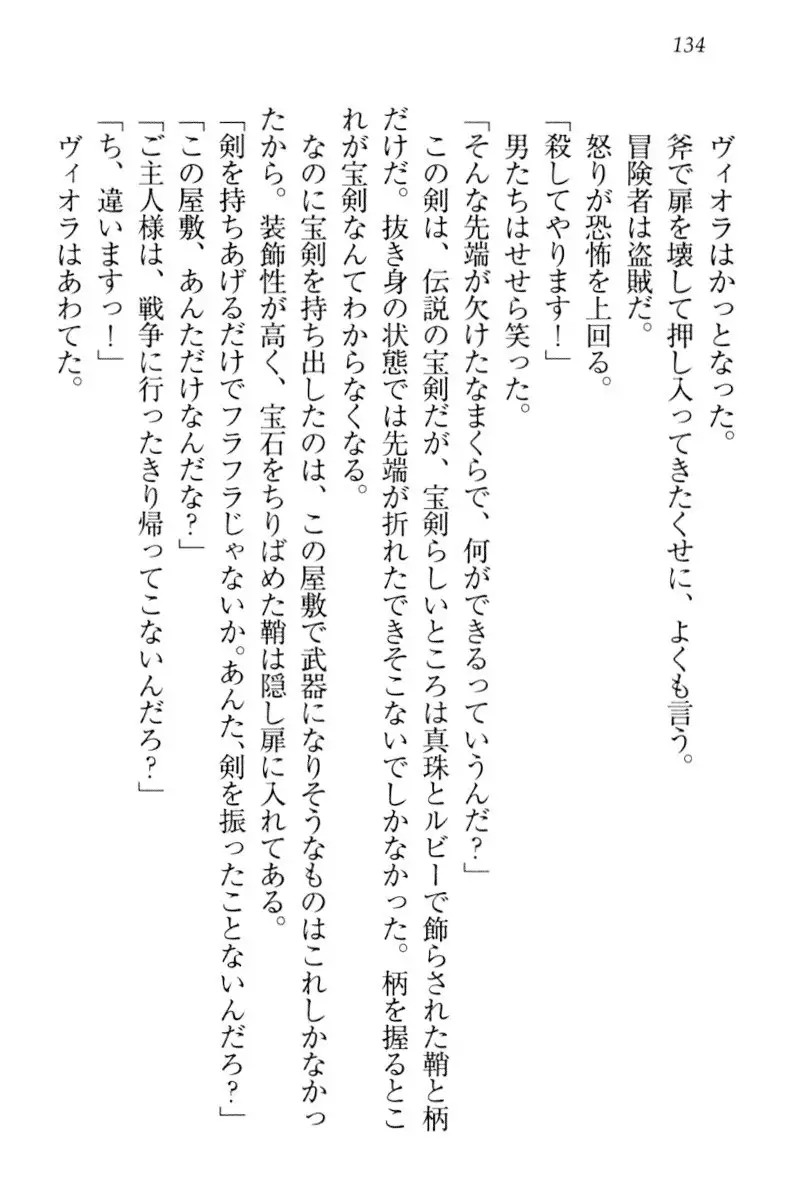 134
ヴィオラはかっとなった。
斧で扉を壊して押し入ってきたくせに、よくも言う。
冒険者は盗賊だ。
怒りが恐怖を上回る。
「殺してやります！」
男たちはせせら笑った。
「そんな先端が欠けたなまくらで、何ができるっていうんだ？」
この剣は、伝説の宝剣だが、宝剣らしいところは真珠とルビーで飾らされた鞘と柄
だけだ。抜き身の状態では先端が折れたできそこないでしかなかった。柄を握るとこ
れが宝剣なんてわからなくなる。
なのに宝剣を持ち出したのは、この屋敷で武器になりそうなものはこれしかなかっ
たから。装飾性が高く、宝石をちりばめた鞘は隠し扉に入れてある。
「剣を持ちあげるだけでフラフラじゃないか。あんた、剣を振ったことないんだろ？」
「この屋敷、あんただけなんだな？」
「ご主人様は、戦争に行ったきり帰ってこないんだろ？」
「ち、違いますっ！」
ヴィオラはあわてた。